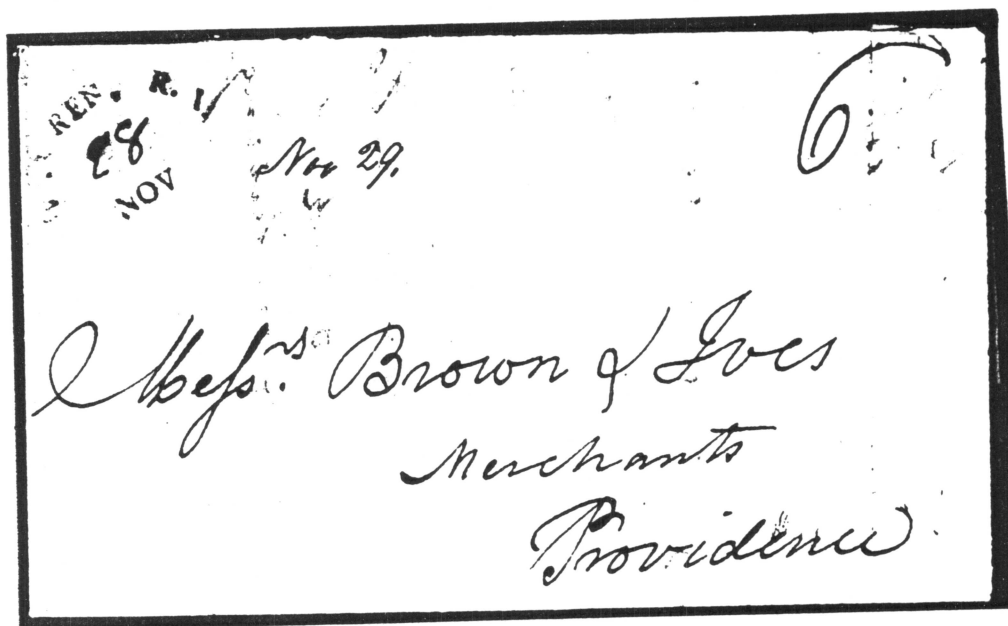 REN. R. I.
28
NOV
Nov 29.
6
Messrs. Brown & Ives
Merchants
Providence